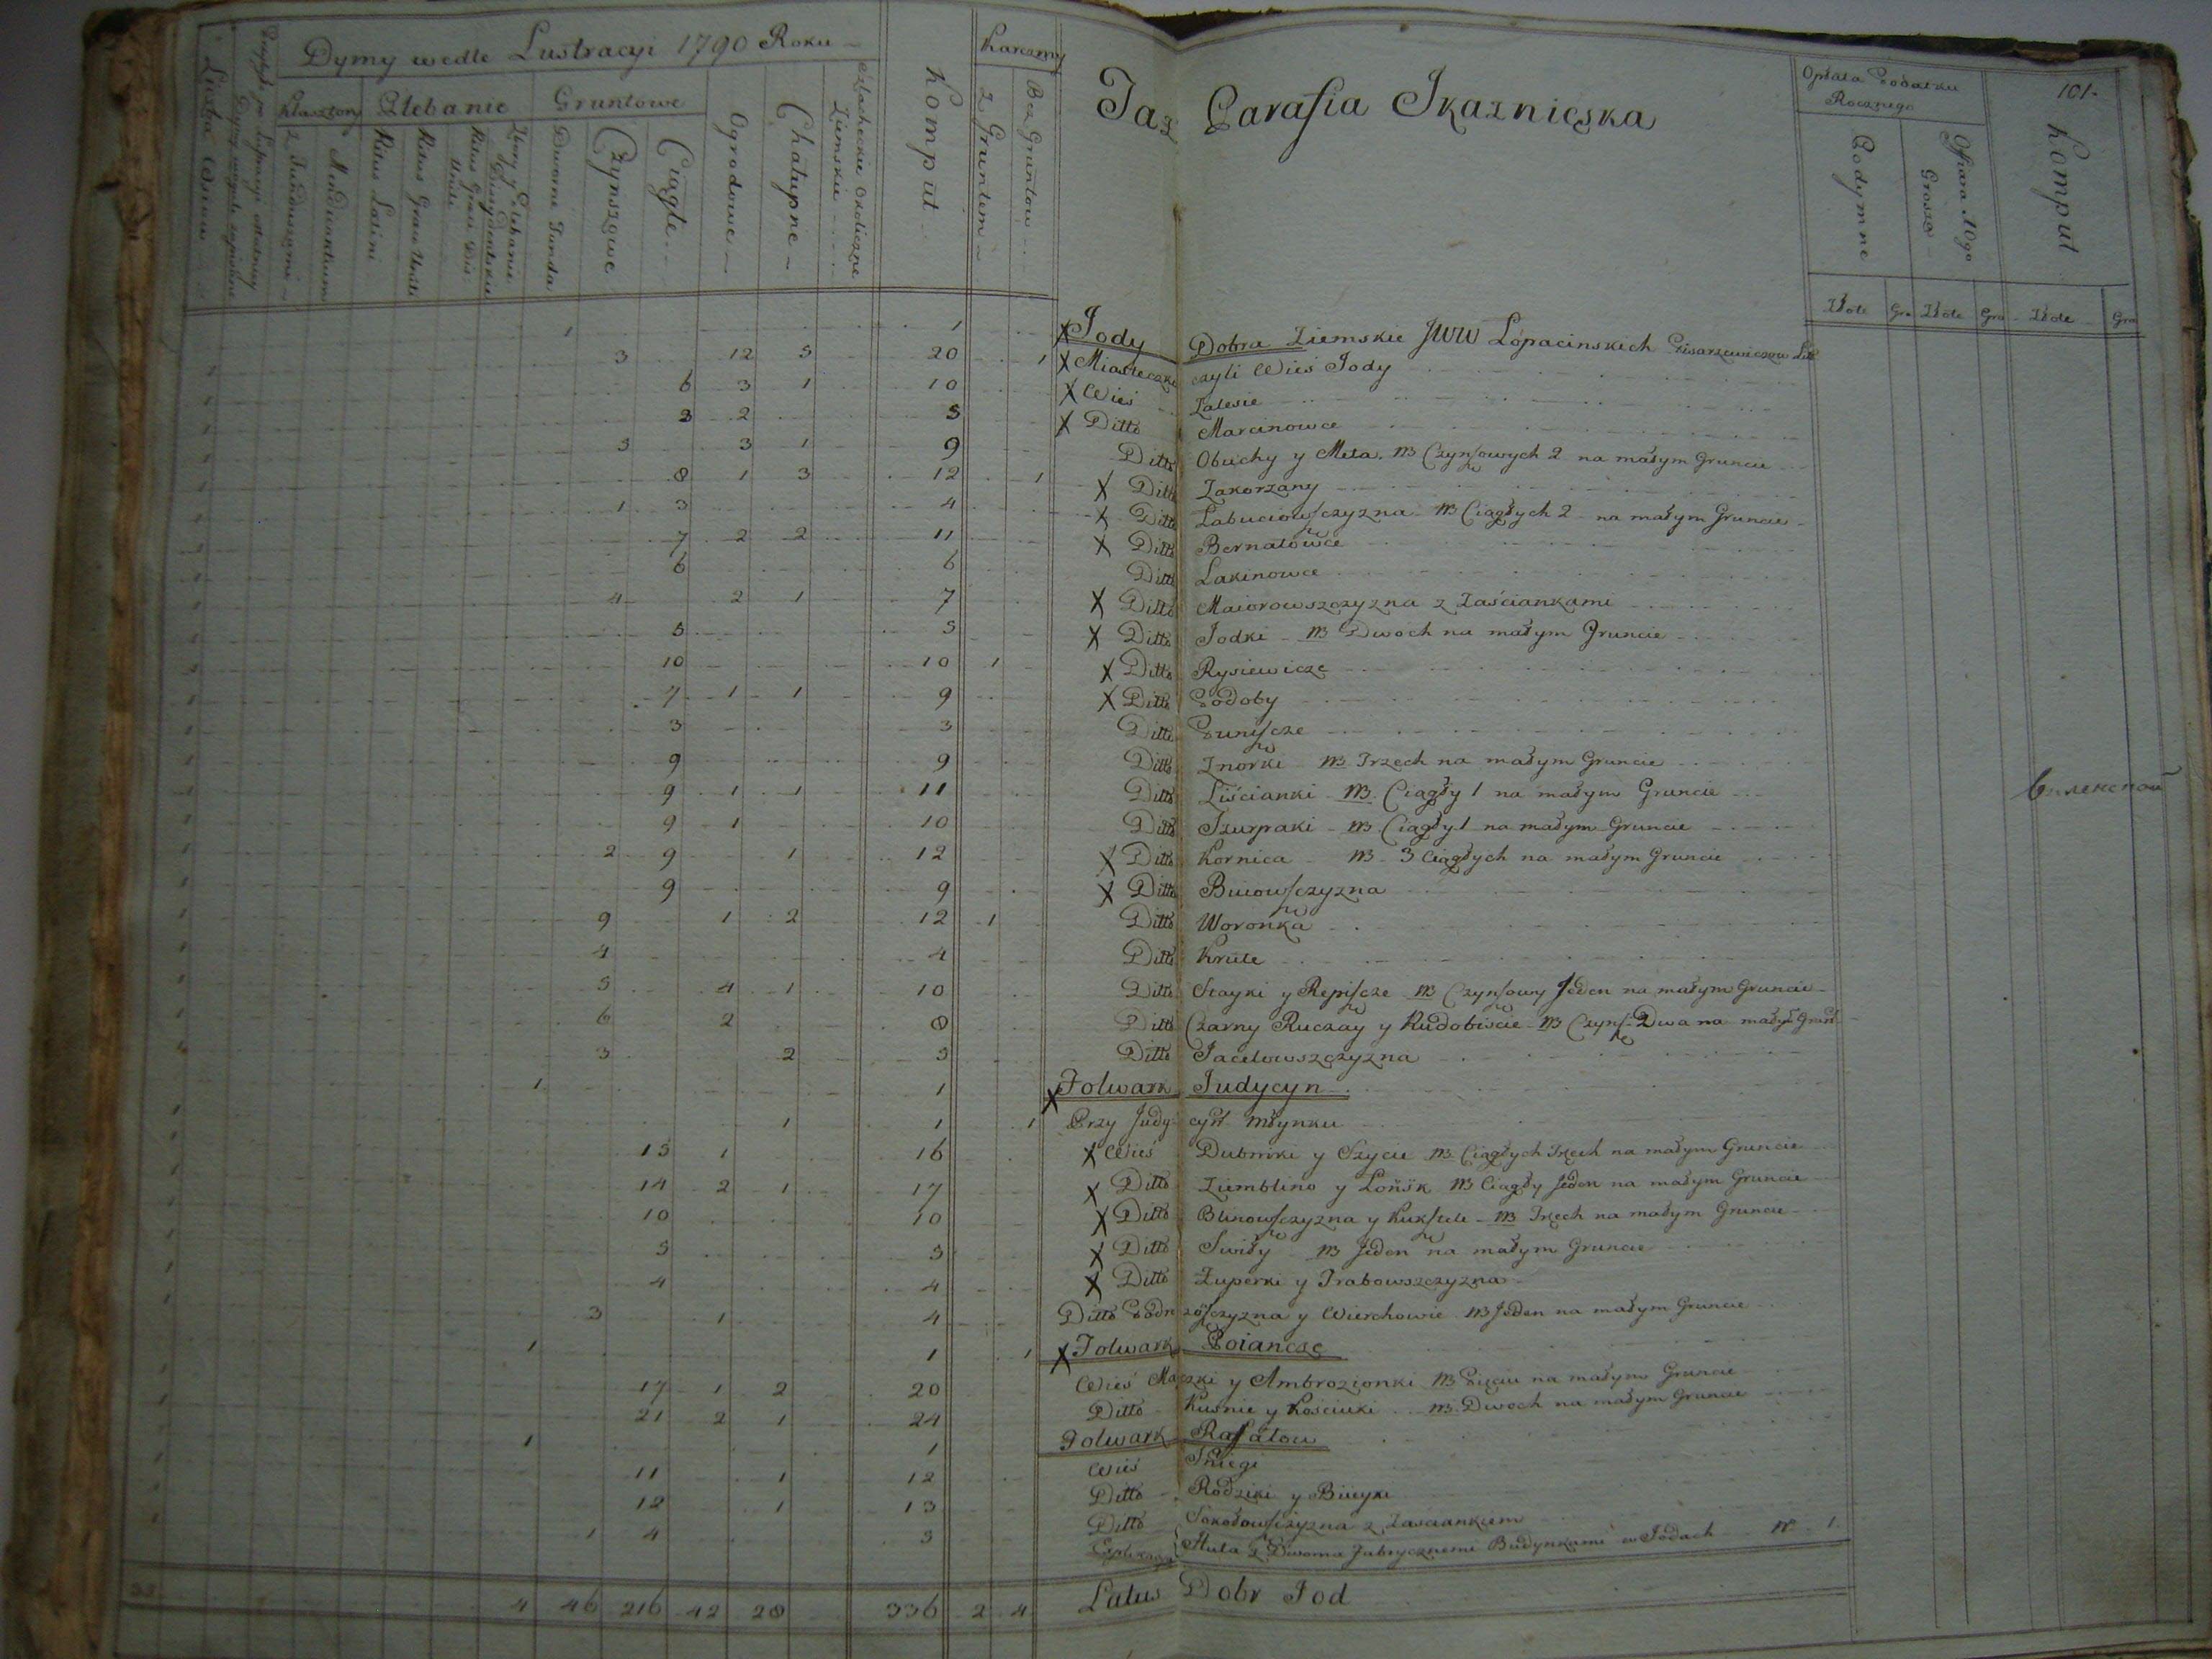 Dymy wedle Lustracyi 1790 Roku
Karczmy
Klasztory
Plebanie
Gruntowe
Ogrodowe
Chałupne
Szlacheckie Okoliczne Ziemskie
Komput
z Gruntem
Bez Gruntow
z Funduszami
Mendicantium
Ritus Latini
Ritus Graeci Uniti
Dworne Funda
Czynszowe
Ciągłe
Taż Parafia Ikaznieska
Opłata Podatku Rocznego
101.
Podymne
Ofiara 10go Grosza
Komput
Złote Gro Złote Gro Złote Gro
1 1 Jody Dobra Ziemskie JWW Łopacinskich Pisarzewiczow Litt
3 12 5 20 1 Miasteczko czyli Wieś Jody
6 3 1 10 Wieś Zalesie
3 2 5 Ditto Marcinowce
5 3 1 9 Ditto Obuchy y Meta. NB Czynszowych 2 na małym Gruncie
8 1 3 12 1 Ditto Zakorzany
1 3 4 Ditto Łabuciowszczyzna NB Ciągłych 2 na małym Gruncie
7 2 2 11 Ditto Bernatowce
6 6 Ditto Łakinowce
4 2 1 7 Ditto Maiorowszczyzna z Zaściankami
5 5 Ditto Jodki NB Dwoch na małym Gruncie
10 10 1 Ditto Rysiewicze
7 1 1 9 Ditto Podoby
3 3 Ditto Puniszcze
9 9 Ditto Znorki NB Trzech na małym Gruncie
9 1 1 11 Ditto Liścianki NB Ciągły 1 na małym Gruncie
9 1 10 Ditto Szurpaki NB Ciągły 1 na małym Gruncie
2 9 1 12 Ditto Kornica NB 3 Ciągłych na małym Gruncie
9 9 Ditto Buiowszczyzna
9 1 2 12 1 Ditto Woronka
4 4 Ditto Krule
5 4 1 10 Ditto Stayki y Repiszcze NB Czynszowy Jeden na małym Gruncie
6 2 8 Ditto Czarny Ruczay y Rudobiscie NB Czynsz. Dwa na małym Grunt
3 2 5 Ditto Jacelowszczyzna
1 1 Folwark Judycyn
1 1 1 Przy Judycyń Młynku
15 1 16 Wieś Dubniki y Szycie NB Ciągłych Trzech na małym Gruncie
14 2 1 17 Ditto Ziemblino y Łońsk NB Ciągły Jeden na małym Gruncie
10 10 Ditto Blinowszczyzna y Kuksztele NB Trzech na małym Gruncie
5 5 Ditto Swiły NB Jeden na małym Gruncie
4 4 Ditto Zuperki y Trabowszczyzna
3 1 4 Ditto y Wierchowie NB Jeden na małym Gruncie
1 1 1 Folwark Poiancze
17 1 2 20 Wieś Maczki y Ambrozionki NB Pięciu na małym Gruncie
21 2 1 24 Ditto Kusnie y Kościuki NB Dwoch na małym Gruncie
1 1 Folwark Rafałow
11 1 12 Wieś Sniegi
12 1 13 Ditto Rodziki y Biieyki
1 4 5 Ditto Sokołowszczyzna z Zasciankiem
Huta z Dwoma Fabrycznemi Budynkami w Jodach Nr 1
4 46 216 42 28 336 2 4 Latus Dobr Jod